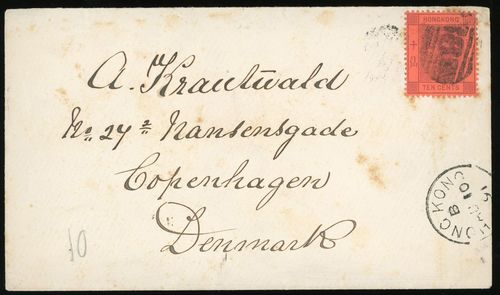 HONGKONG
TEN CENTS
A. Krautwald
No. 27 2 Nansensgade
Copenhagen
Denmark
HONG KONG
B
10
91
10